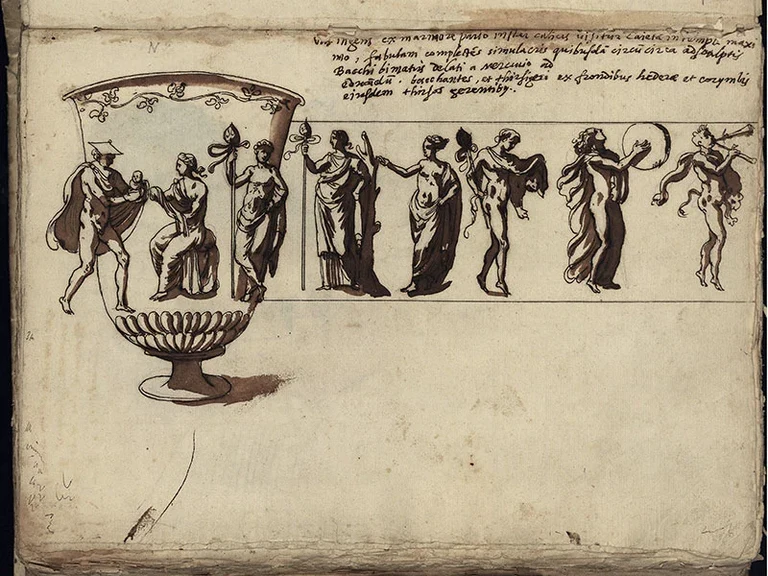 ingens ex marmore pario instar calicis uisitur Caietæ in templo maxi
mo, fabulam complectēs simulacris quibusdā circū circa adsculptis
Bacchi bimatris delati a Mercurio ad
educādū. bacchantes, et thirsigeri ex frondibus hederæ et corymbis
eiusdem thirsos gerentibꝰ.